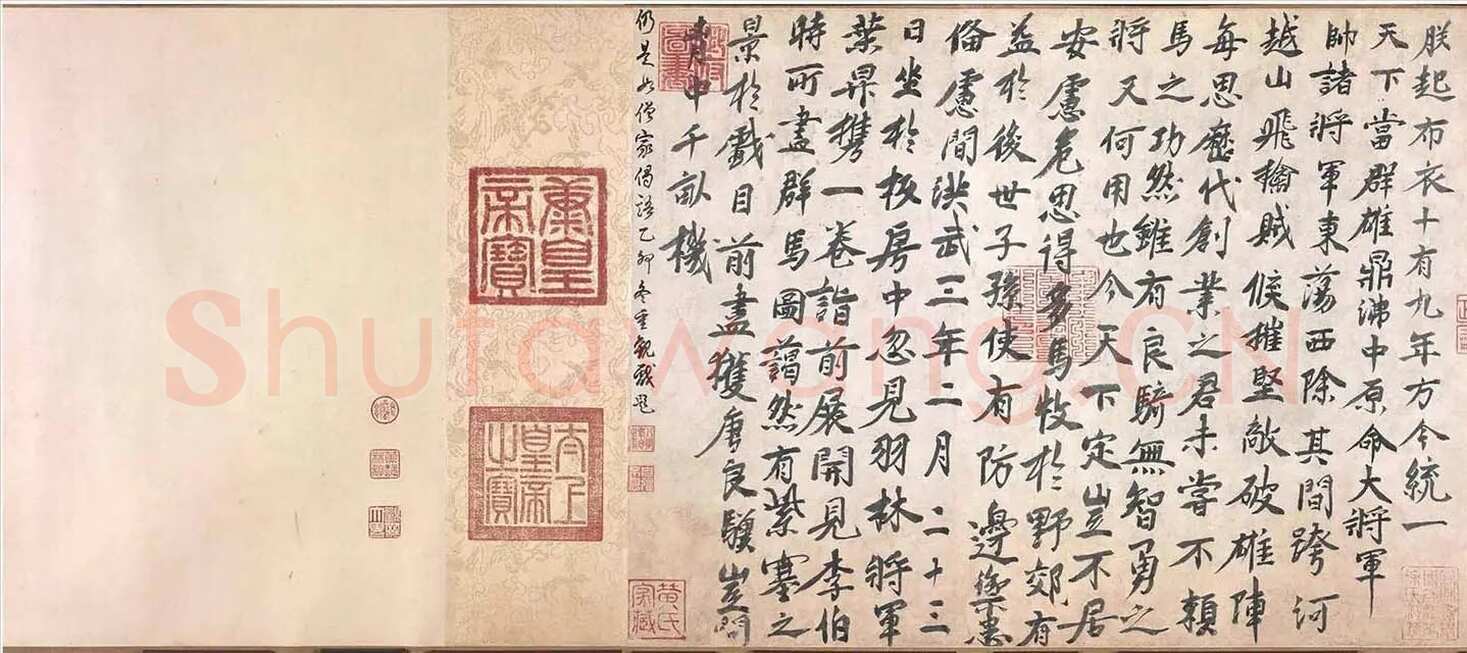 朕起布衣十有九年方今統一
天下當群雄鼎沸中原命大將軍
帥諸將軍東蕩西除其間跨河
越山飛擒賊候摧堅敵破雄陣
每思歷代創業之君未嘗不賴
馬之功然雖有良騎無智勇之
將又何用也今天下定豈不居
安慮危思得多馬牧於野郊有
益於後世子孫使有防邊禦患
俻慮間洪武三年二月二十三
日坐於板房中忽見羽林將軍
葉昇攜一卷詣前展開見李伯
時所畫群馬圖藹然有紫塞之
景於戲目前盡獲唐良驥豈問
青中千畝機
仍是如僧家偈語乙卯冬重觀戲題
黃氏家藏
太上皇帝之寶
Shufawang.CN